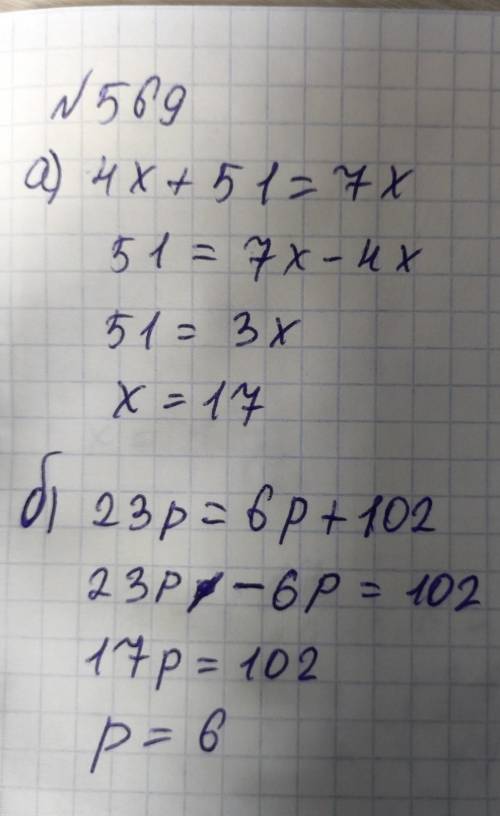 №569
а) 4x + 51 = 7x
51 = 7x - 4x
51 = 3x
x = 17
б) 23p = 6p + 102
23p - 6p = 102
17p = 102
p = 6